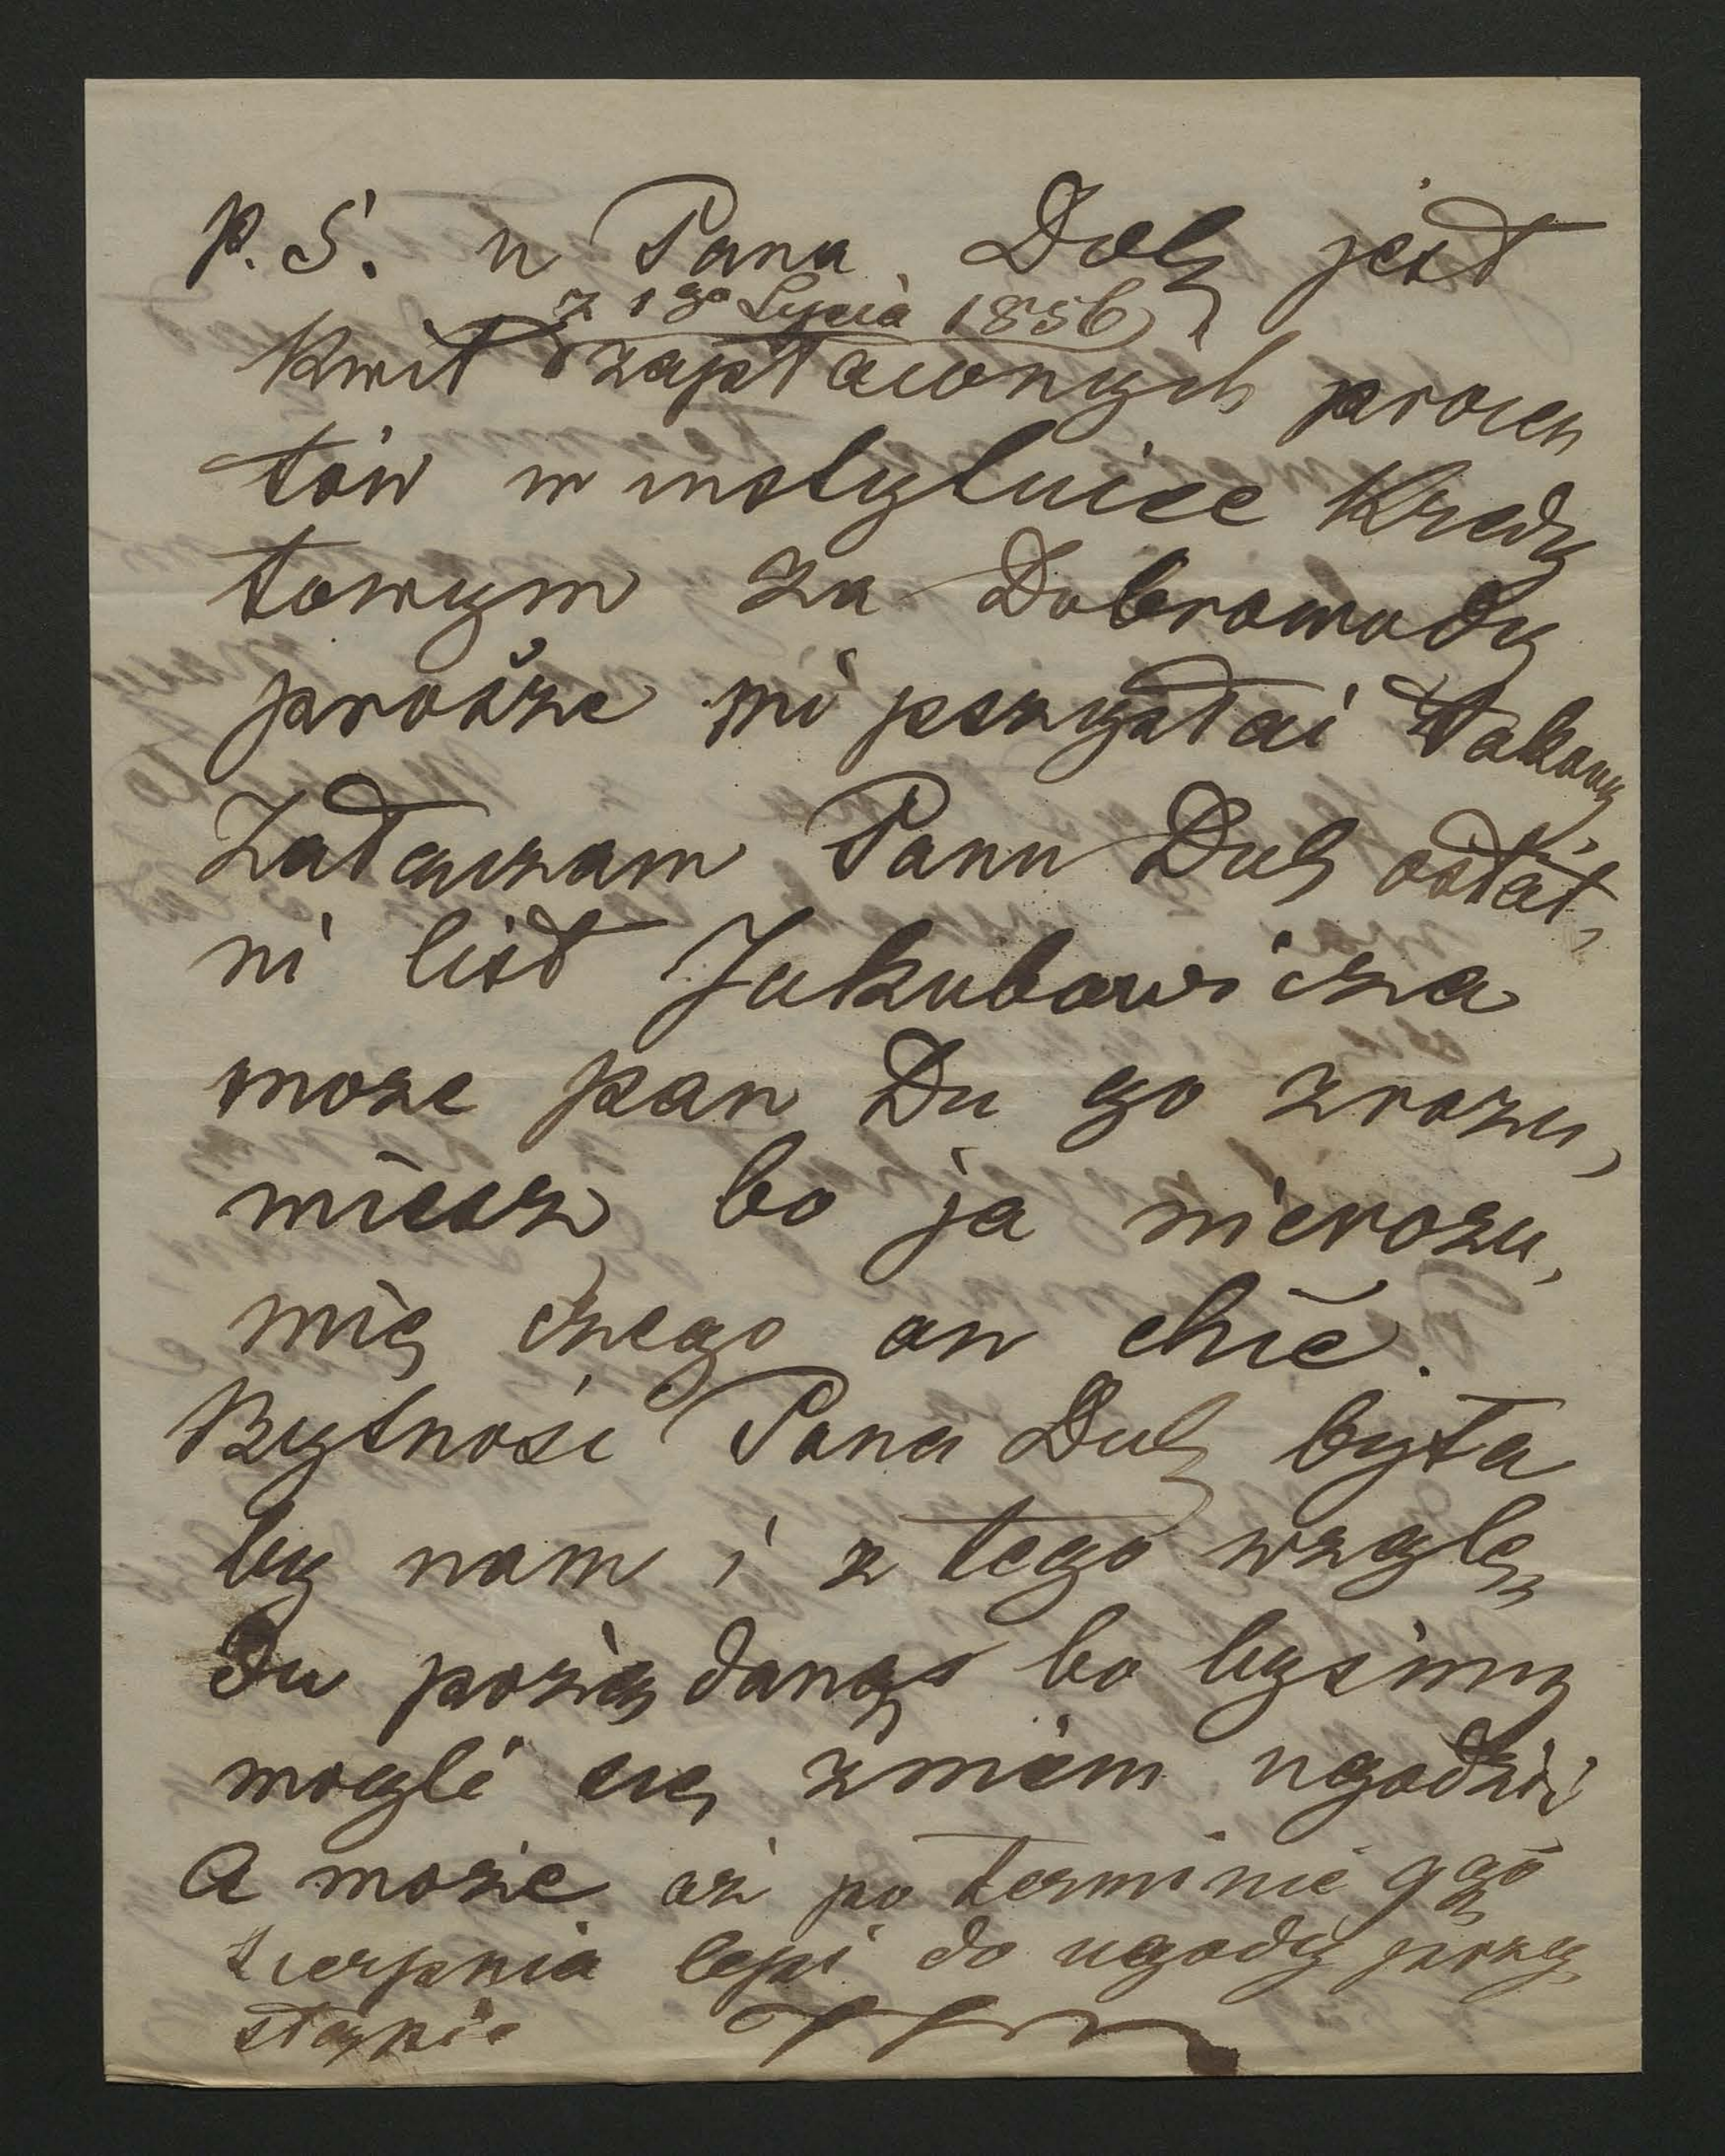 P.S. u Pana Dob jest
z 1go Lipca 1856
Kwit zapłaconych procen
tów w instytuice Kredy
towym za Dobrowody
prosze mi pszysłai
Załauzam Panu Dub ostat,
ni list Jakubowicza
może pan Du go zrozu,
miesz bo ja nierozu,
mię czego on chce.
Bytnośc Pana Dub była
by nam i z tego wzglę,
du pożądaną bo byśmy
mogli się zniem ugodzić
A może aż po terminie 9go
Sierpnia lepi do ugody przy,
stąpie